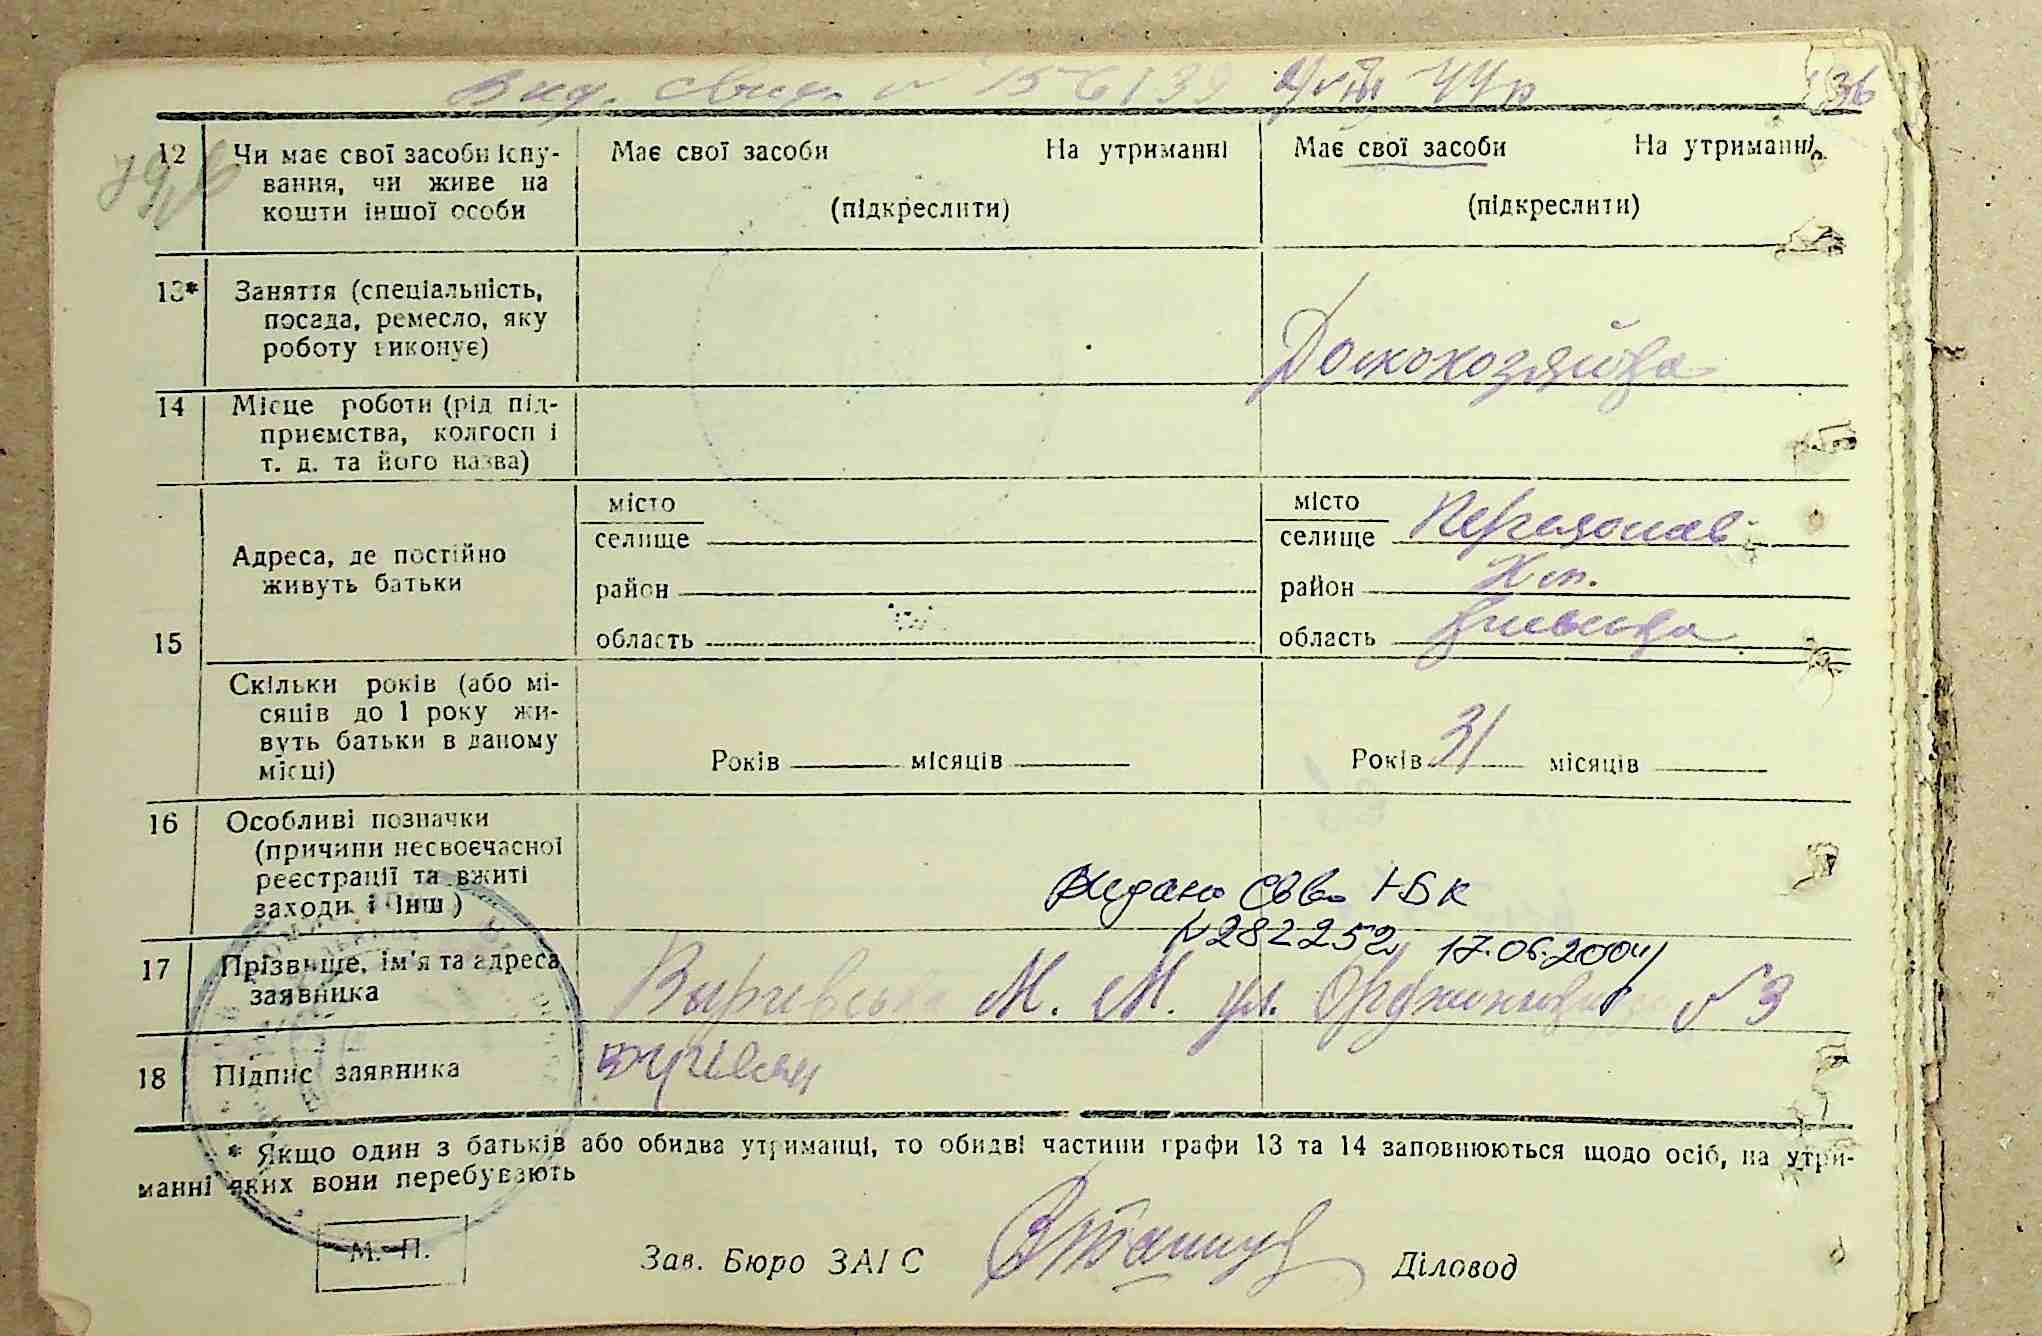 Вид. свид. № 156139 44 р
36
12 Чи має свої засоби існу-
вання, чи живе на
кошти іншої особи
Має свої засоби На утриманні
(підкреслити)
Має свої засоби На утриманні
(підкреслити)
13* Заняття (спеціальність,
посада, ремесло, яку
роботу виконує)
Домохозяйка
14 Місце роботи (рід під-
приємства, колгосп і
т. д. та його назва)
15
Адреса, де постійно
живуть батьки
місто
селище
район
область
місто
селище Переяслав
район Хм.
область Київська
Скільки років (або мі-
сяців до 1 року жи-
вуть батьки в даному
місці)
Років місяців
Років 31 місяців
16 Особливі позначки
(причини несвоєчасної
реєстрації та вжиті
заходи і інш)
Видано св-во І-БК
№ 282252 17.06.2004
17 Прізвище, ім'я та адреса
заявника
М. М. ул. Орджоникидзе № 3
18 Підпис заявника
* Якщо один з батьків або обидва утриманці, то обидві частини графи 13 та 14 заповнюються щодо осіб, на утри-
манні яких вони перебувають
М. П.
Зав. Бюро ЗАГС Діловод